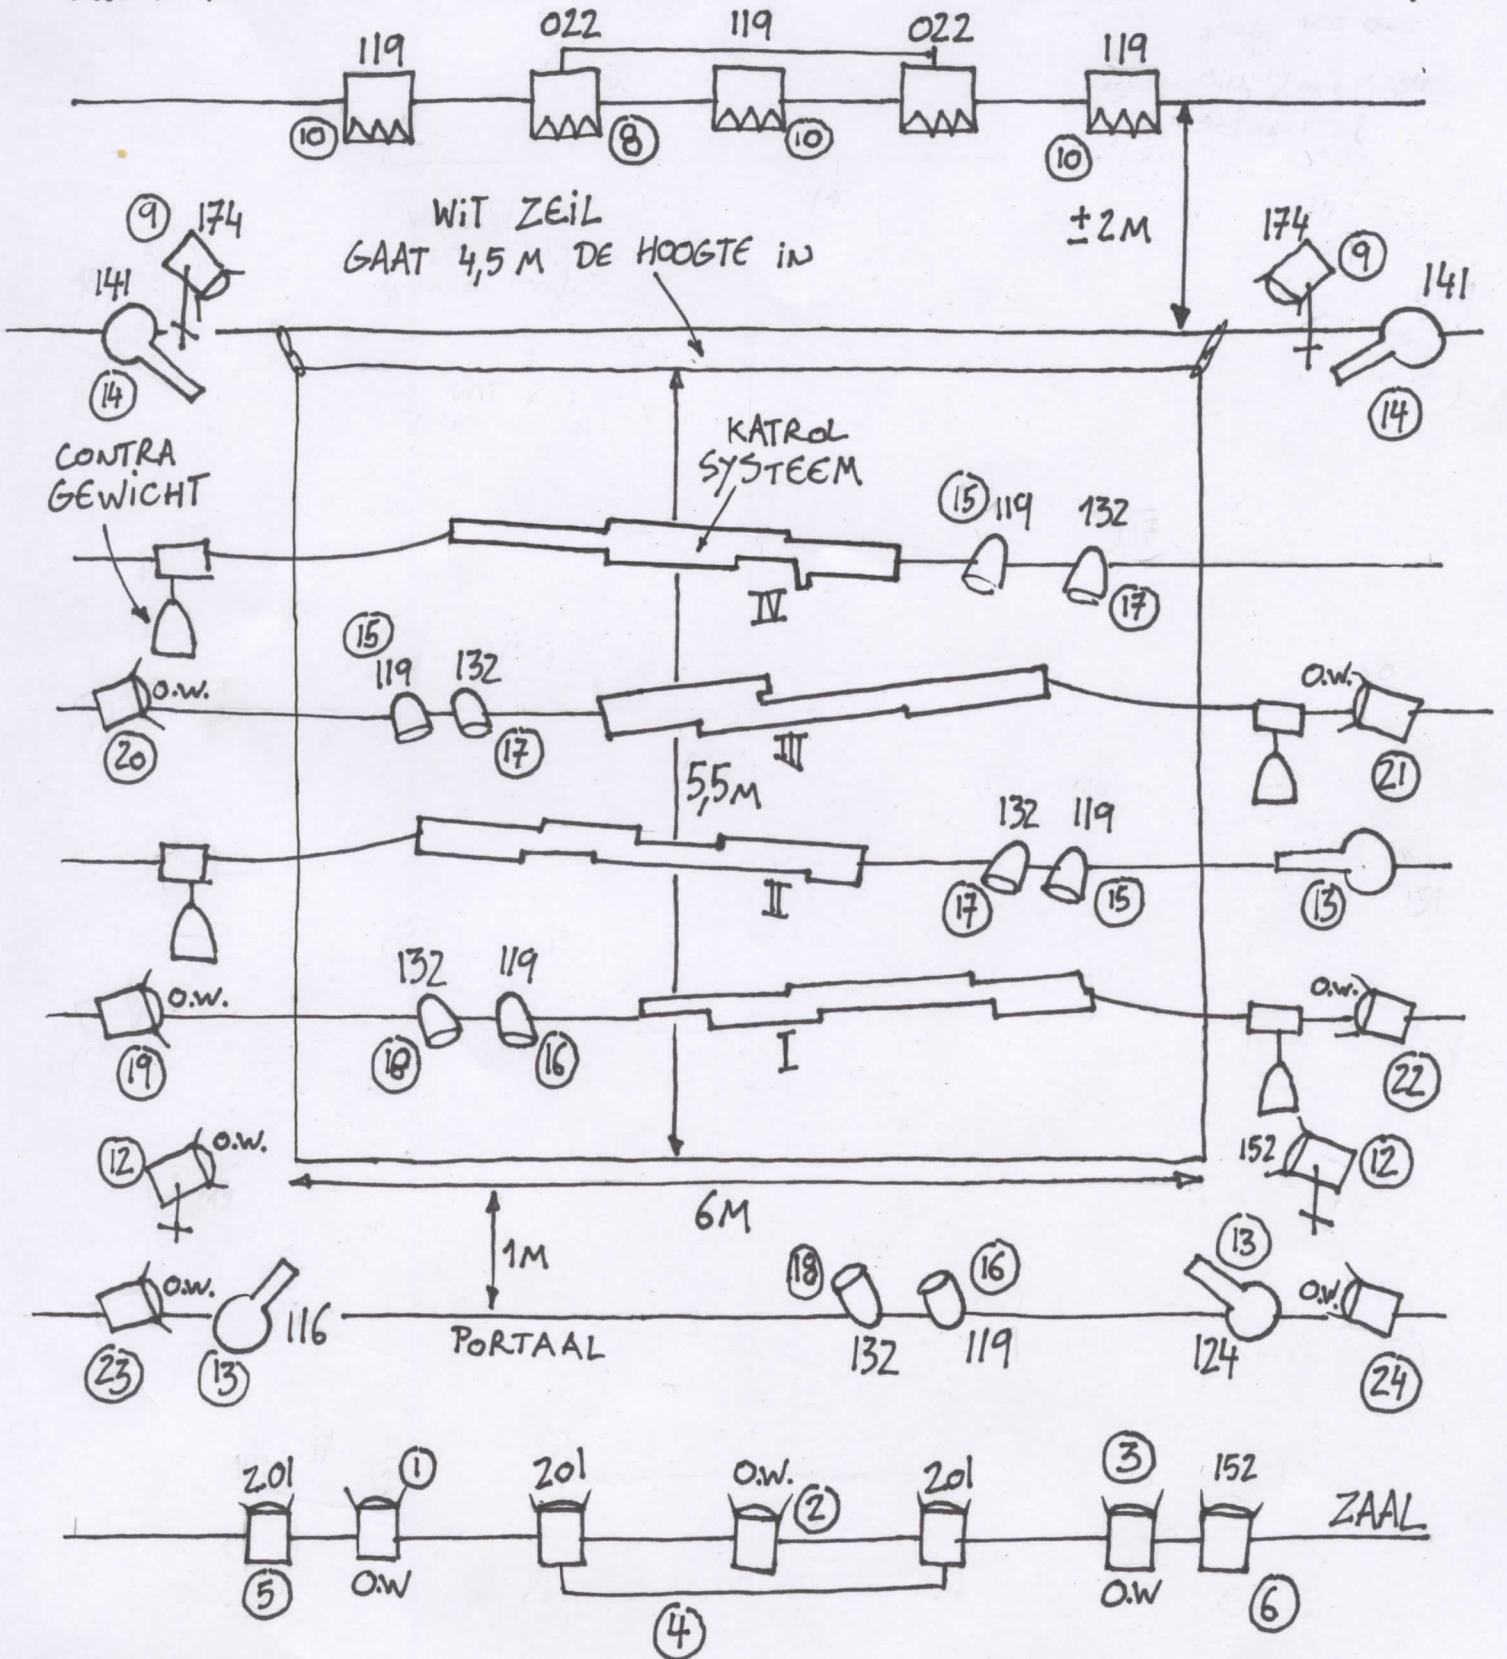 119 022 119 022 119
10 8 10 10
9 174
WiT ZEiL
GAAT 4,5 M DE HOOGTE iN
± 2M
174 9
141
141
14
14
CONTRA
GEWiCHT
KATROL
SYSTEEM
15 119 132
IV
17
15
119 132
O.W.
20
17
III
O.W.
21
5,5M
132 119
II
17 15
13
132 119
O.W.
19
18 16
I
O.W.
22
12 O.W.
152 12
6M
1M
18 16
13
O.W.
23
13
116
PORTAAL
132 119
124
O.W.
24
201 1 201 O.W. 2 201 3 152
ZAAL
5 O.W O.W 6
4